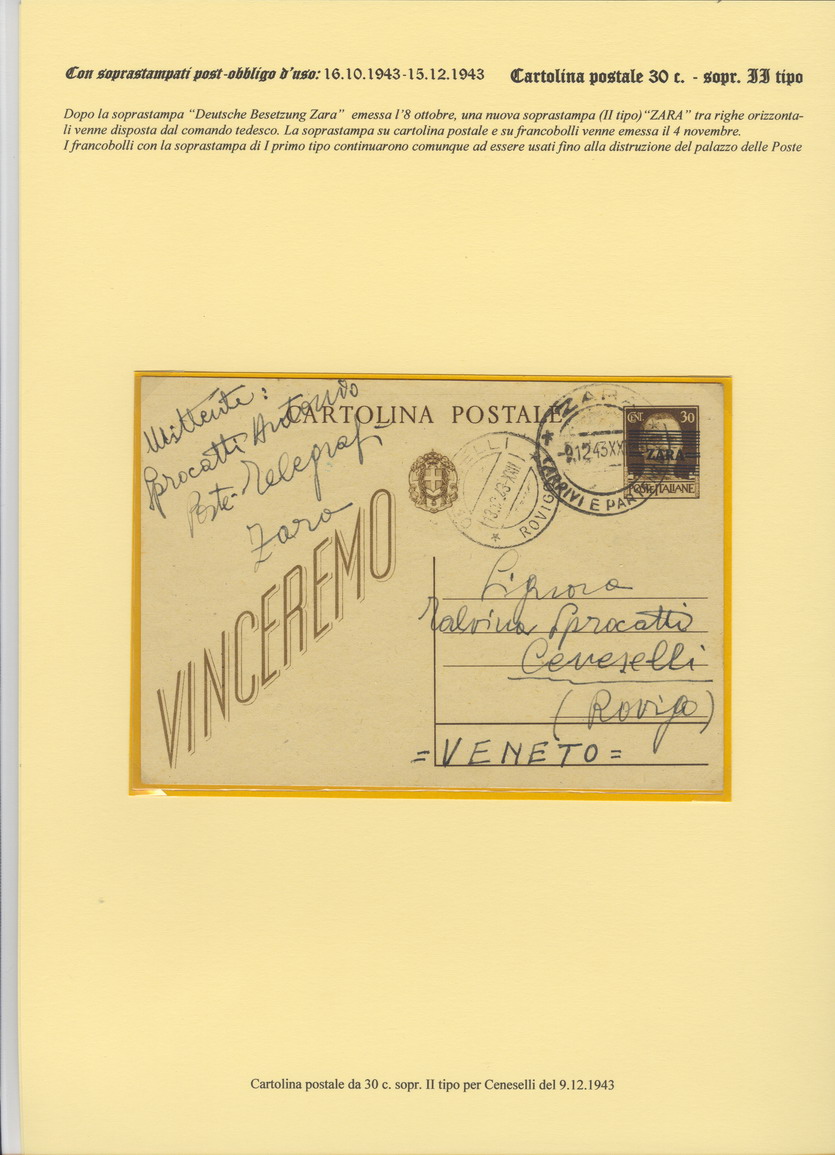 Con soprastampati post-obbligo d'uso: 16.10.1943-15.12.1943 Cartolina postale 30 c. - sopr. II tipo
Dopo la soprastampa "Deutsche Besetzung Zara" emessa l'8 ottobre, una nuova soprastampa (II tipo) "ZARA" tra righe orizzonta-
li venne disposta dal comando tedesco. La soprastampa su cartolina postale e su francobolli venne emessa il 4 novembre.
I francobolli con la soprastampa di I primo tipo continuarono comunque ad essere usati fino alla distruzione del palazzo delle Poste
Mittente:
Sprocatti Antonio
Poste-Telegrafi
Zara
CARTOLINA POSTALE
VINCEREMO
ROVIGO
ZARA
9.12.43 XX
ARRIVI E PAR
CENT. 30
ZARA
POSTE ITALIANE
Signora
Malvina Sprocatti
Ceneselli
(Rovigo)
=VENETO=
Cartolina postale da 30 c. sopr. II tipo per Ceneselli del 9.12.1943